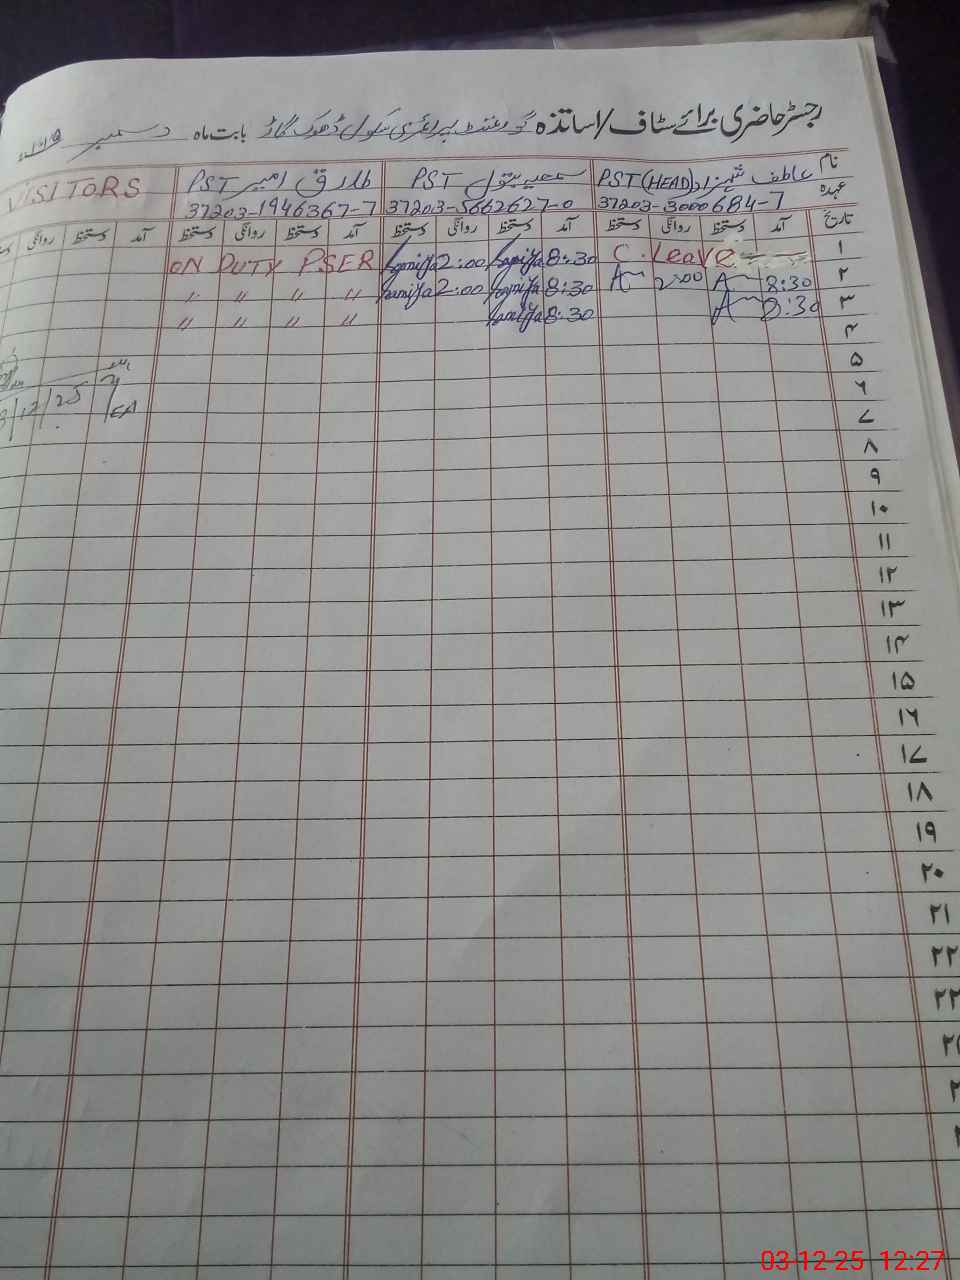 رجسٹر حاضری برائے سٹاف/اساتذہ گورنمنٹ پرائمری سکول ڈھوک گاڑ بابت ماہ دسمبر
نام عاطف شہزاد PST (HEAD) PST طارق امیر PST VISITORS
عہدہ 37203-3000684-7 37203-5662627-0 37203-1946367-7
تاریخ آمد دستخط روانگی دستخط آمد دستخط روانگی دستخط آمد دستخط روانگی دستخط آمد دستخط روانگی
۱ C. Leave 8:30 2:00 ON DUTY PSER
۲ 8:30 2:00 8:30 2:00 〃 〃 〃 〃
۳ 8:30 8:30 〃 〃 〃 〃
۴
۵
۶
۷
۸
۹
۱۰
۱۱
۱۲
۱۳
۱۴
۱۵
۱۶
۱۷
۱۸
۱۹
۲۰
۲۱
۲۲
۲۳
03-12-25 12:27